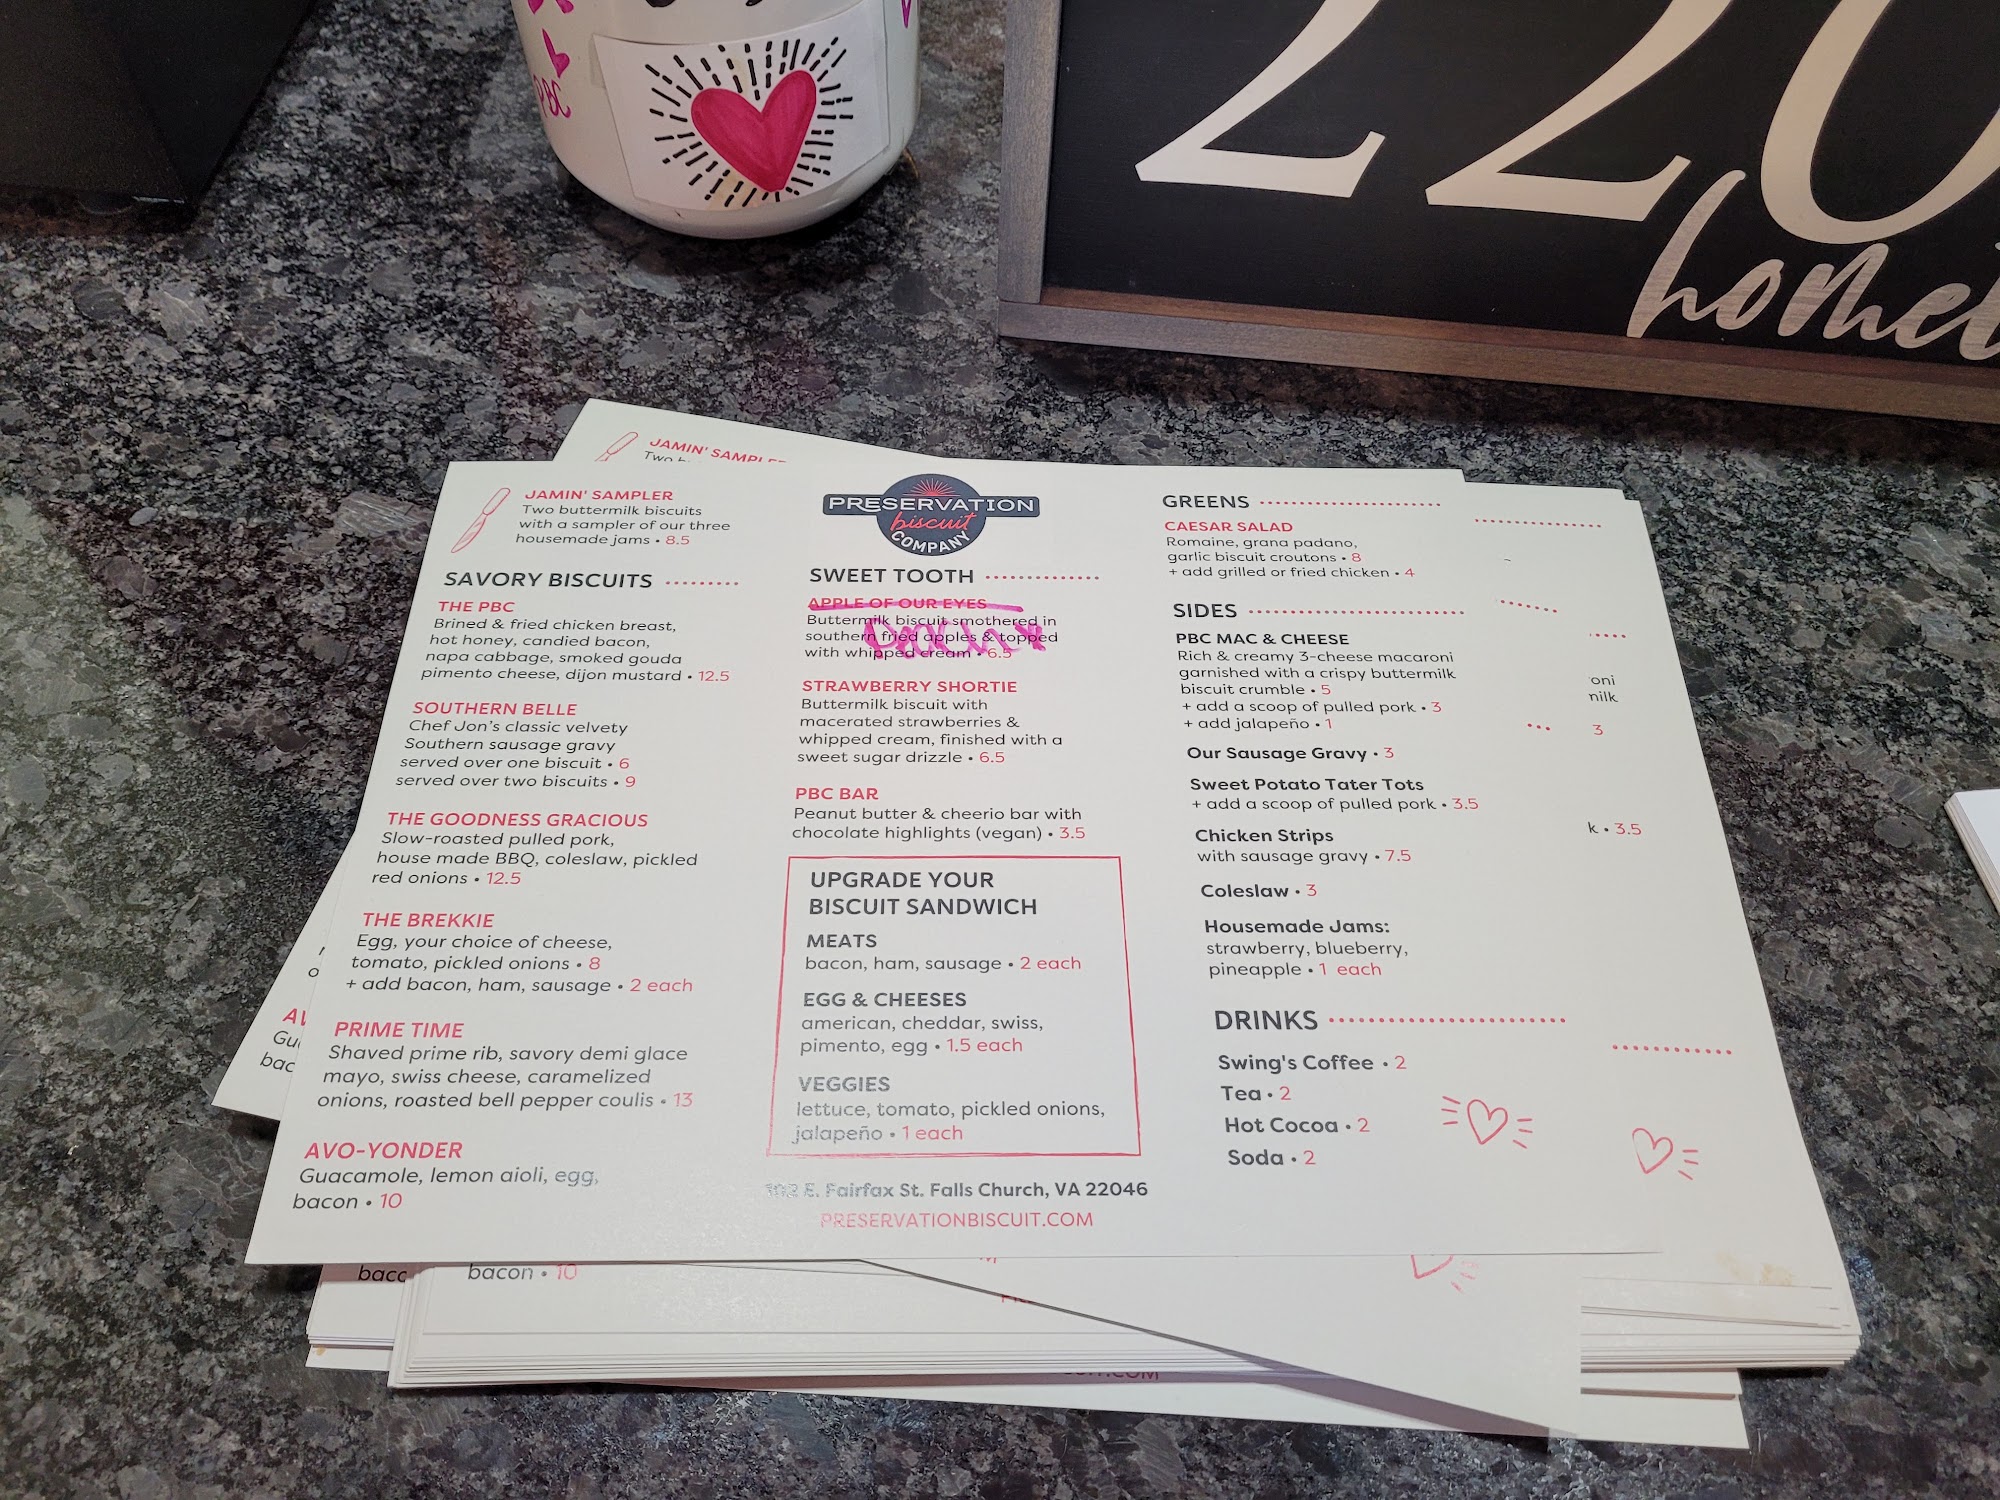 PBC
220
JAMIN' SAMPLER
JAMIN' SAMPLER
Two buttermilk biscuits
with a sampler of our three
housemade jams • 8.5
SAVORY BISCUITS
THE PBC
Brined & fried chicken breast,
hot honey, candied bacon,
napa cabbage, smoked gouda
pimento cheese, dijon mustard • 12.5
SOUTHERN BELLE
Chef Jon's classic velvety
Southern sausage gravy
served over one biscuit • 6
served over two biscuits • 9
THE GOODNESS GRACIOUS
Slow-roasted pulled pork,
house made BBQ, coleslaw, pickled
red onions • 12.5
THE BREKKIE
Egg, your choice of cheese,
tomato, pickled onions • 8
+ add bacon, ham, sausage • 2 each
PRIME TIME
Shaved prime rib, savory demi glace
mayo, swiss cheese, caramelized
onions, roasted bell pepper coulis • 13
AVO-YONDER
Guacamole, lemon aioli, egg,
bacon • 10
PRESERVATION
biscuit
COMPANY
SWEET TOOTH
APPLE OF OUR EYES
Buttermilk biscuit smothered in
southern fried apples & topped
with whipped cream • 6.5
STRAWBERRY SHORTIE
Buttermilk biscuit with
macerated strawberries &
whipped cream, finished with a
sweet sugar drizzle • 6.5
PBC BAR
Peanut butter & cheerio bar with
chocolate highlights (vegan) • 3.5
UPGRADE YOUR
BISCUIT SANDWICH
MEATS
bacon, ham, sausage • 2 each
EGG & CHEESES
american, cheddar, swiss,
pimento, egg • 1.5 each
VEGGIES
lettuce, tomato, pickled onions,
jalapeño • 1 each
102 E. Fairfax St. Falls Church, VA 22046
PRESERVATIONBISCUIT.COM
GREENS
CAESAR SALAD
Romaine, grana padano,
garlic biscuit croutons • 8
+ add grilled or fried chicken • 4
SIDES
PBC MAC & CHEESE
Rich & creamy 3-cheese macaroni
garnished with a crispy buttermilk
biscuit crumble • 5
+ add a scoop of pulled pork • 3
+ add jalapeño • 1
Our Sausage Gravy • 3
Sweet Potato Tater Tots
+ add a scoop of pulled pork • 3.5
Chicken Strips
with sausage gravy • 7.5
Coleslaw • 3
Housemade Jams:
strawberry, blueberry,
pineapple • 1 each
DRINKS
Swing's Coffee • 2
Tea • 2
Hot Cocoa • 2
Soda • 2
oni
milk
3
k • 3.5
bacon • 10